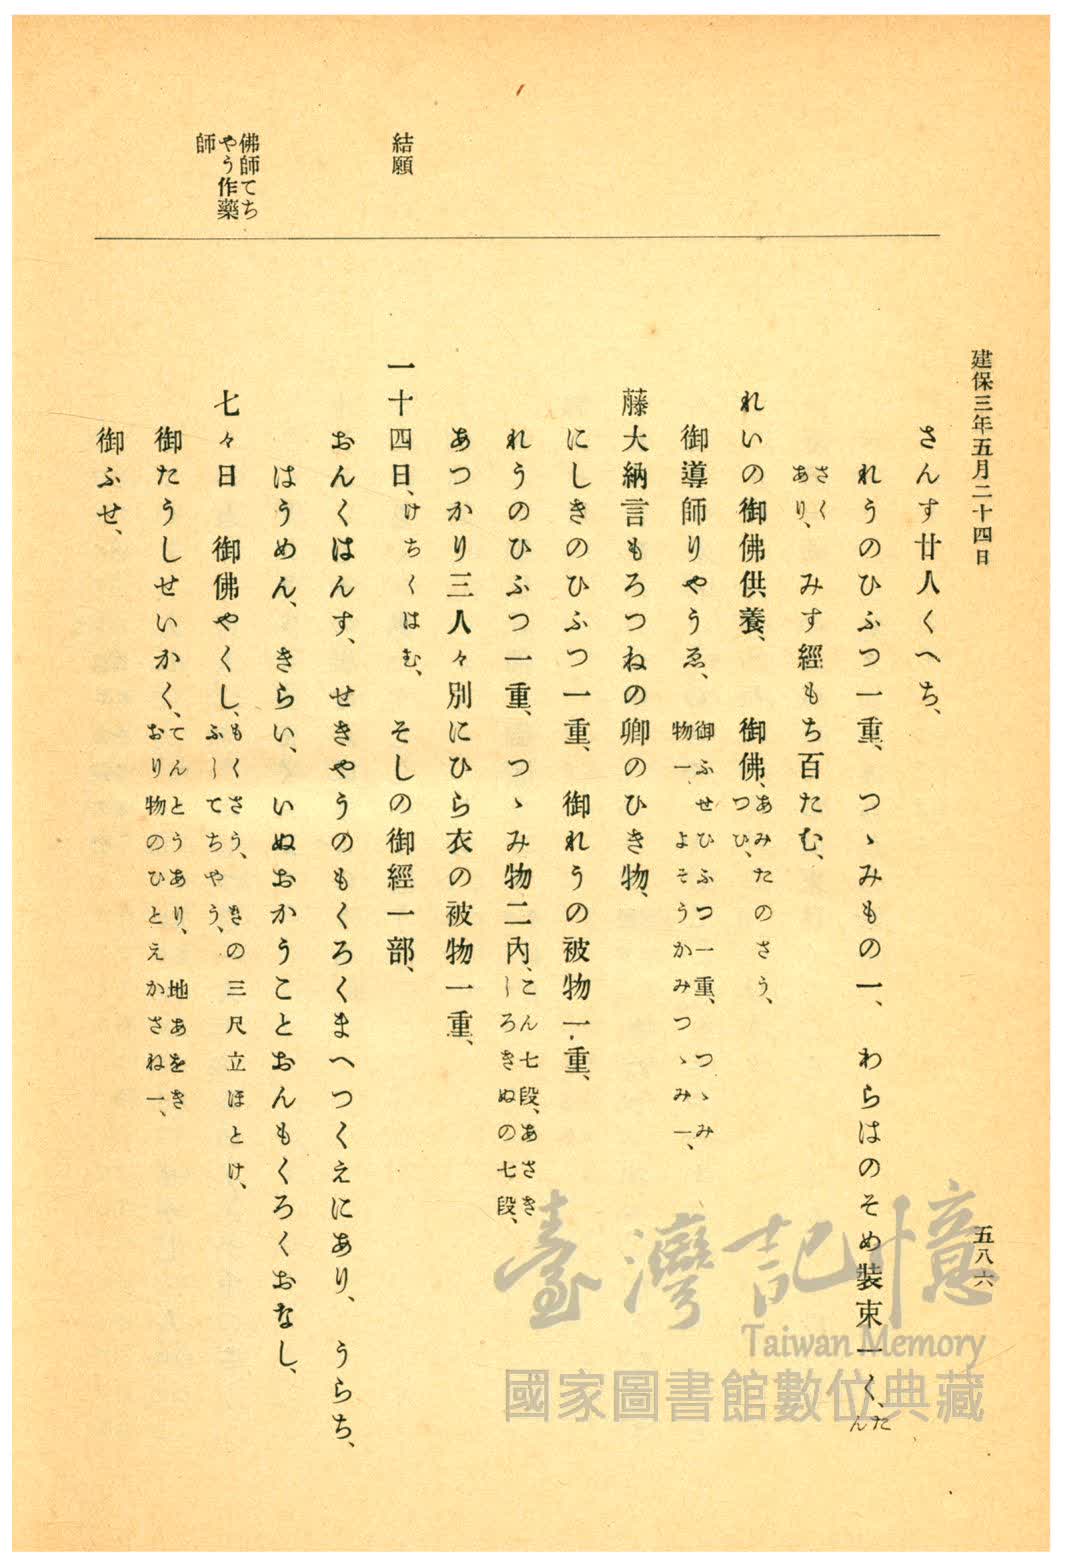 建保三年五月二十四日
五八六
さんす廿人くへち、
れうのひふつ一重、つゝみもの一、わらはのそめ裝束一く、たん
さくあり、みす經もち百たむ、
れいの御佛供養、御佛、あみたのさう、つひ、
御導師りやうゑ、御ふせひふつ一重、つゝみ物一、よそうかみつゝみ一、
藤大納言もろつねの卿のひき物、
にしきのひふつ一重、御れうの被物一重、
れうのひふつ一重、つゝみ物二內、こん七段、あさきしろきぬの七段、
あつかり三人々別にひら衣の被物一重、
一十四日、けちくはむ、そしの御經一部、
おんくはんす、せきやうのもくろくまへつくえにあり、うらち、
はうめん、きらい、いぬおかうことおんもくろくおなし、
七々日 御佛やくし、もくさう、きの三尺立ほとけ、ふしてちやう、
御たうしせいかく、てんとうあり、地あをきおり物のひとえかさね一、
御ふせ、
結願
佛師てち
やう作藥
師
臺灣記憶
Taiwan Memory
國家圖書館數位典藏